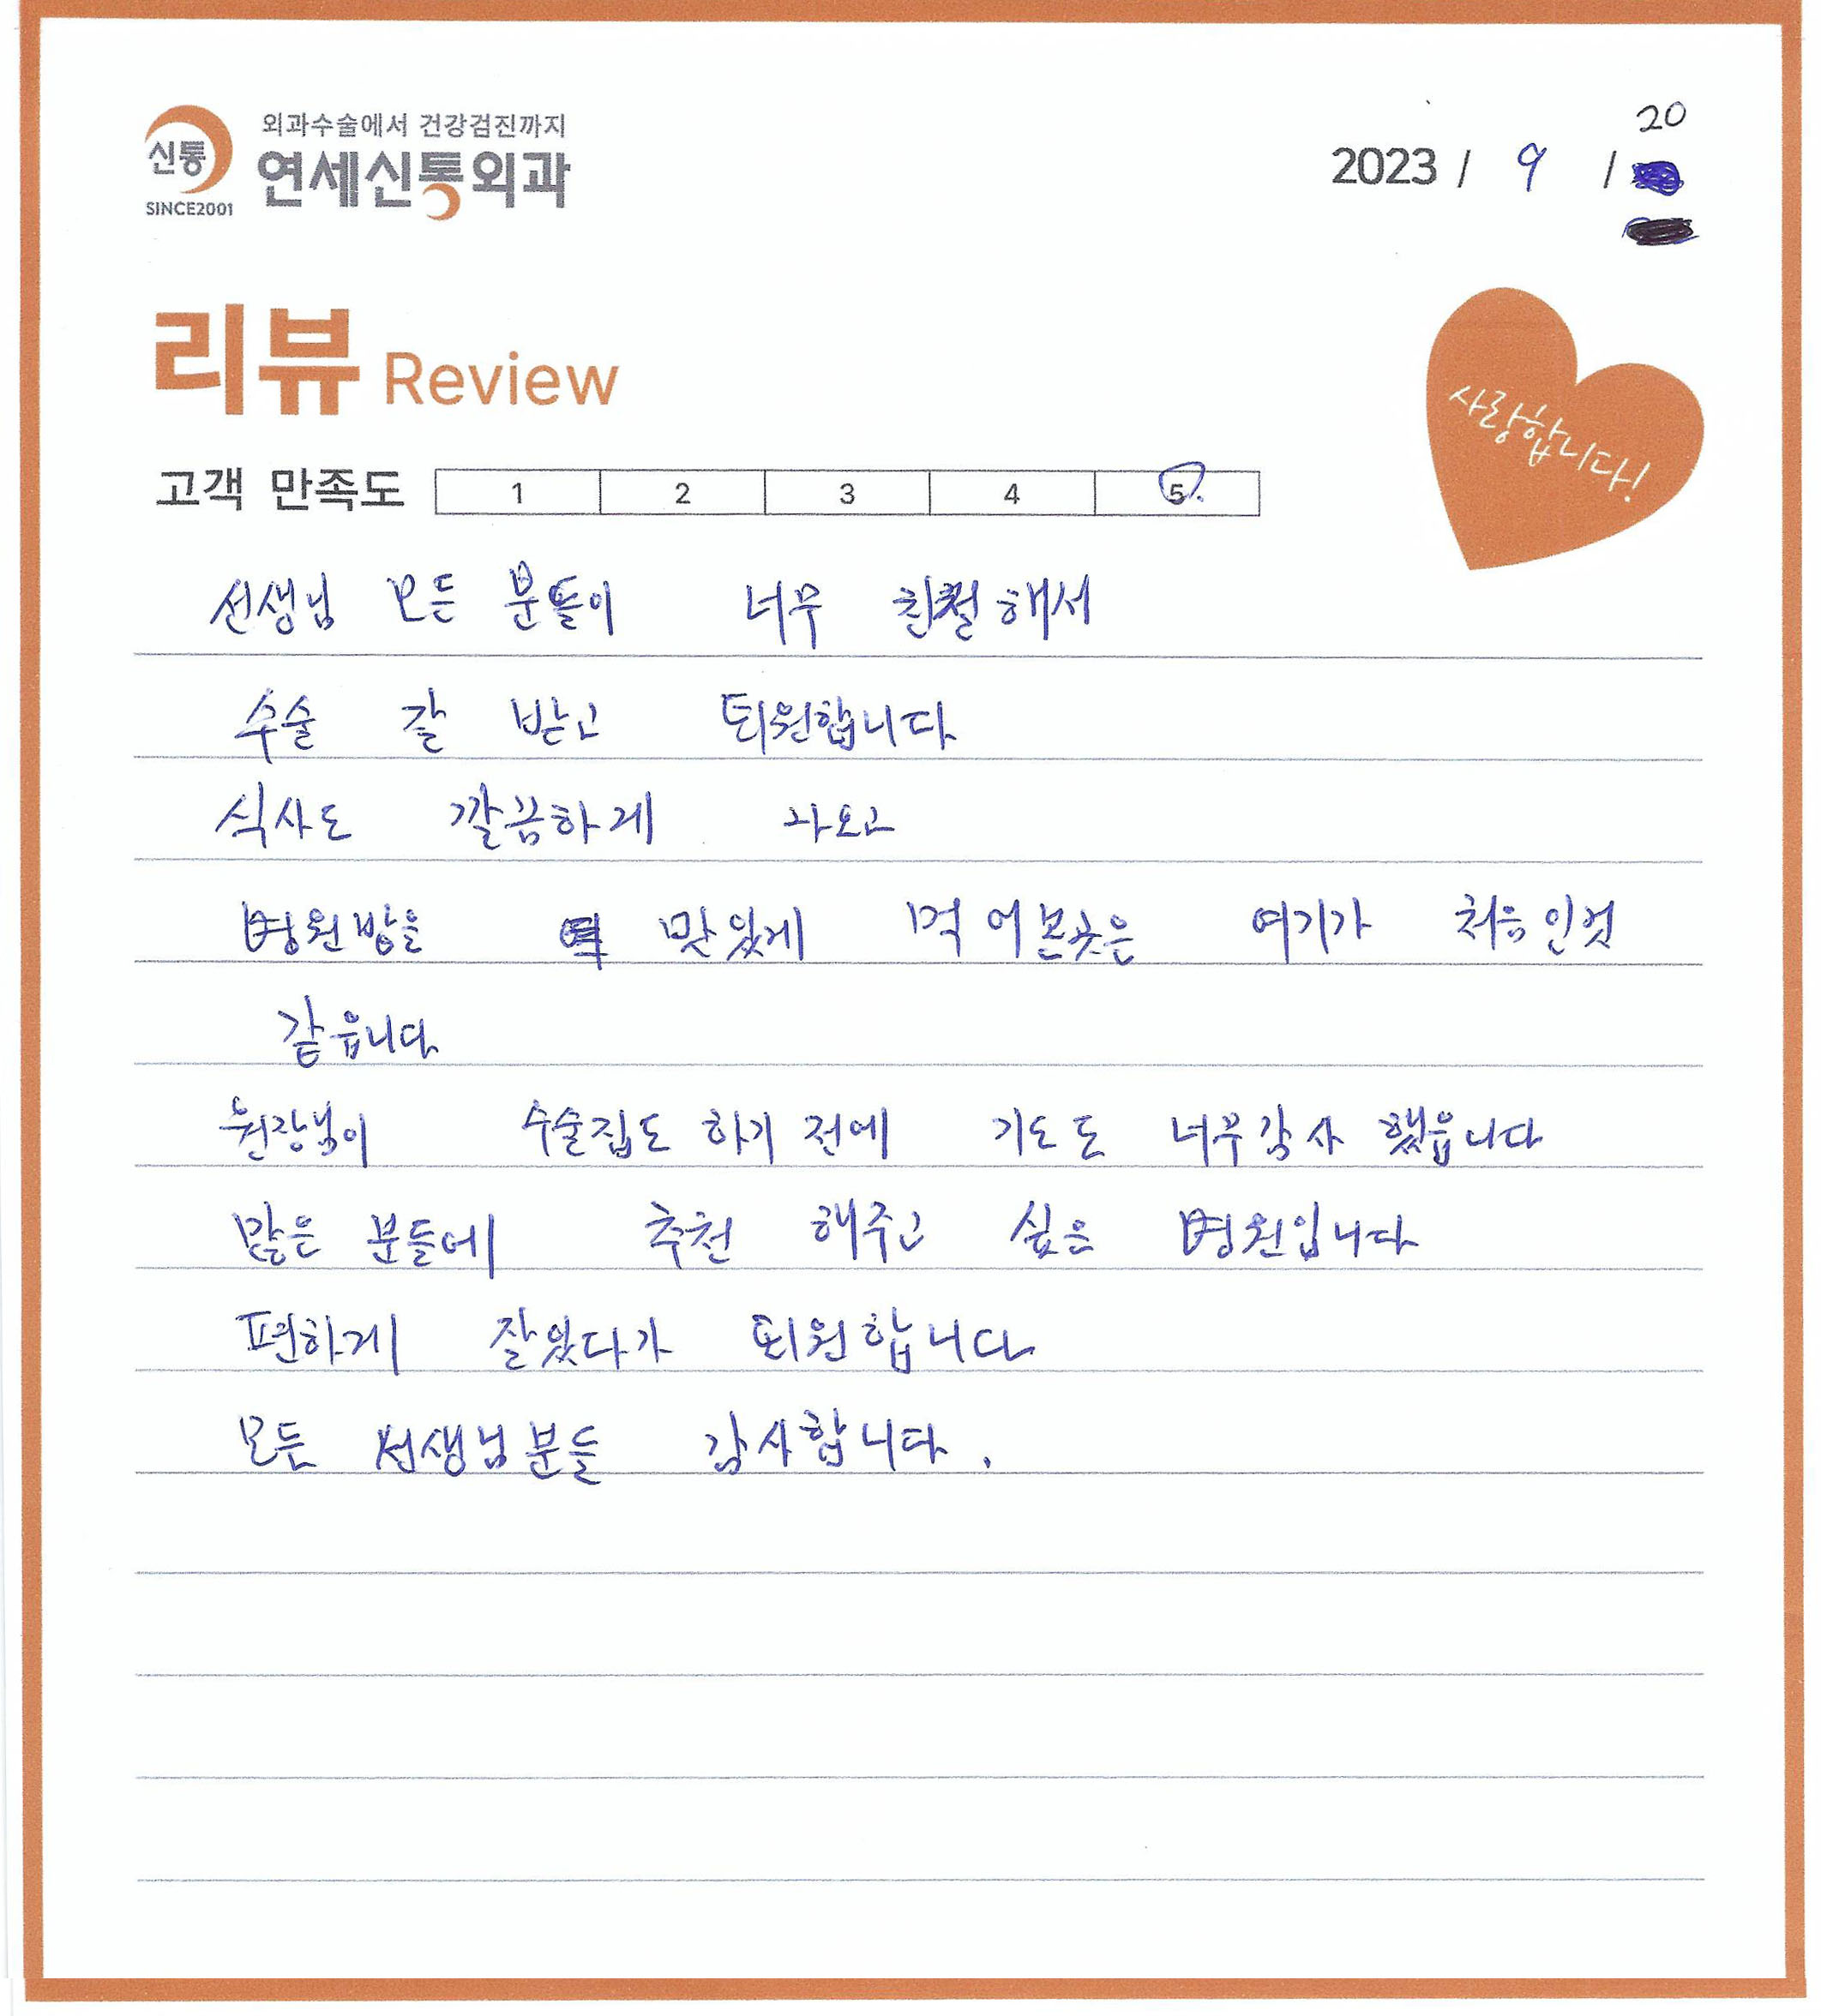 외과수술에서 건강검진까지
신통 연세신통외과
SINCE2001
20
2023 / 9 /
리뷰 Review
사랑합니다!
고객 만족도 1 2 3 4 5
선생님 모든 분들이 너무 친절해서
수술 잘 받고 퇴원합니다
식사도 깔끔하게 나오고
병원밥을 맛있게 먹어본곳은 여기가 처음인것
같읍니다
원장님이 수술집도 하기 전에 기도도 너무감사 했읍니다
많은 분들에 추천 해주고 싶은 병원입니다
편하게 잘있다가 퇴원합니다
모든 선생님분들 감사합니다.